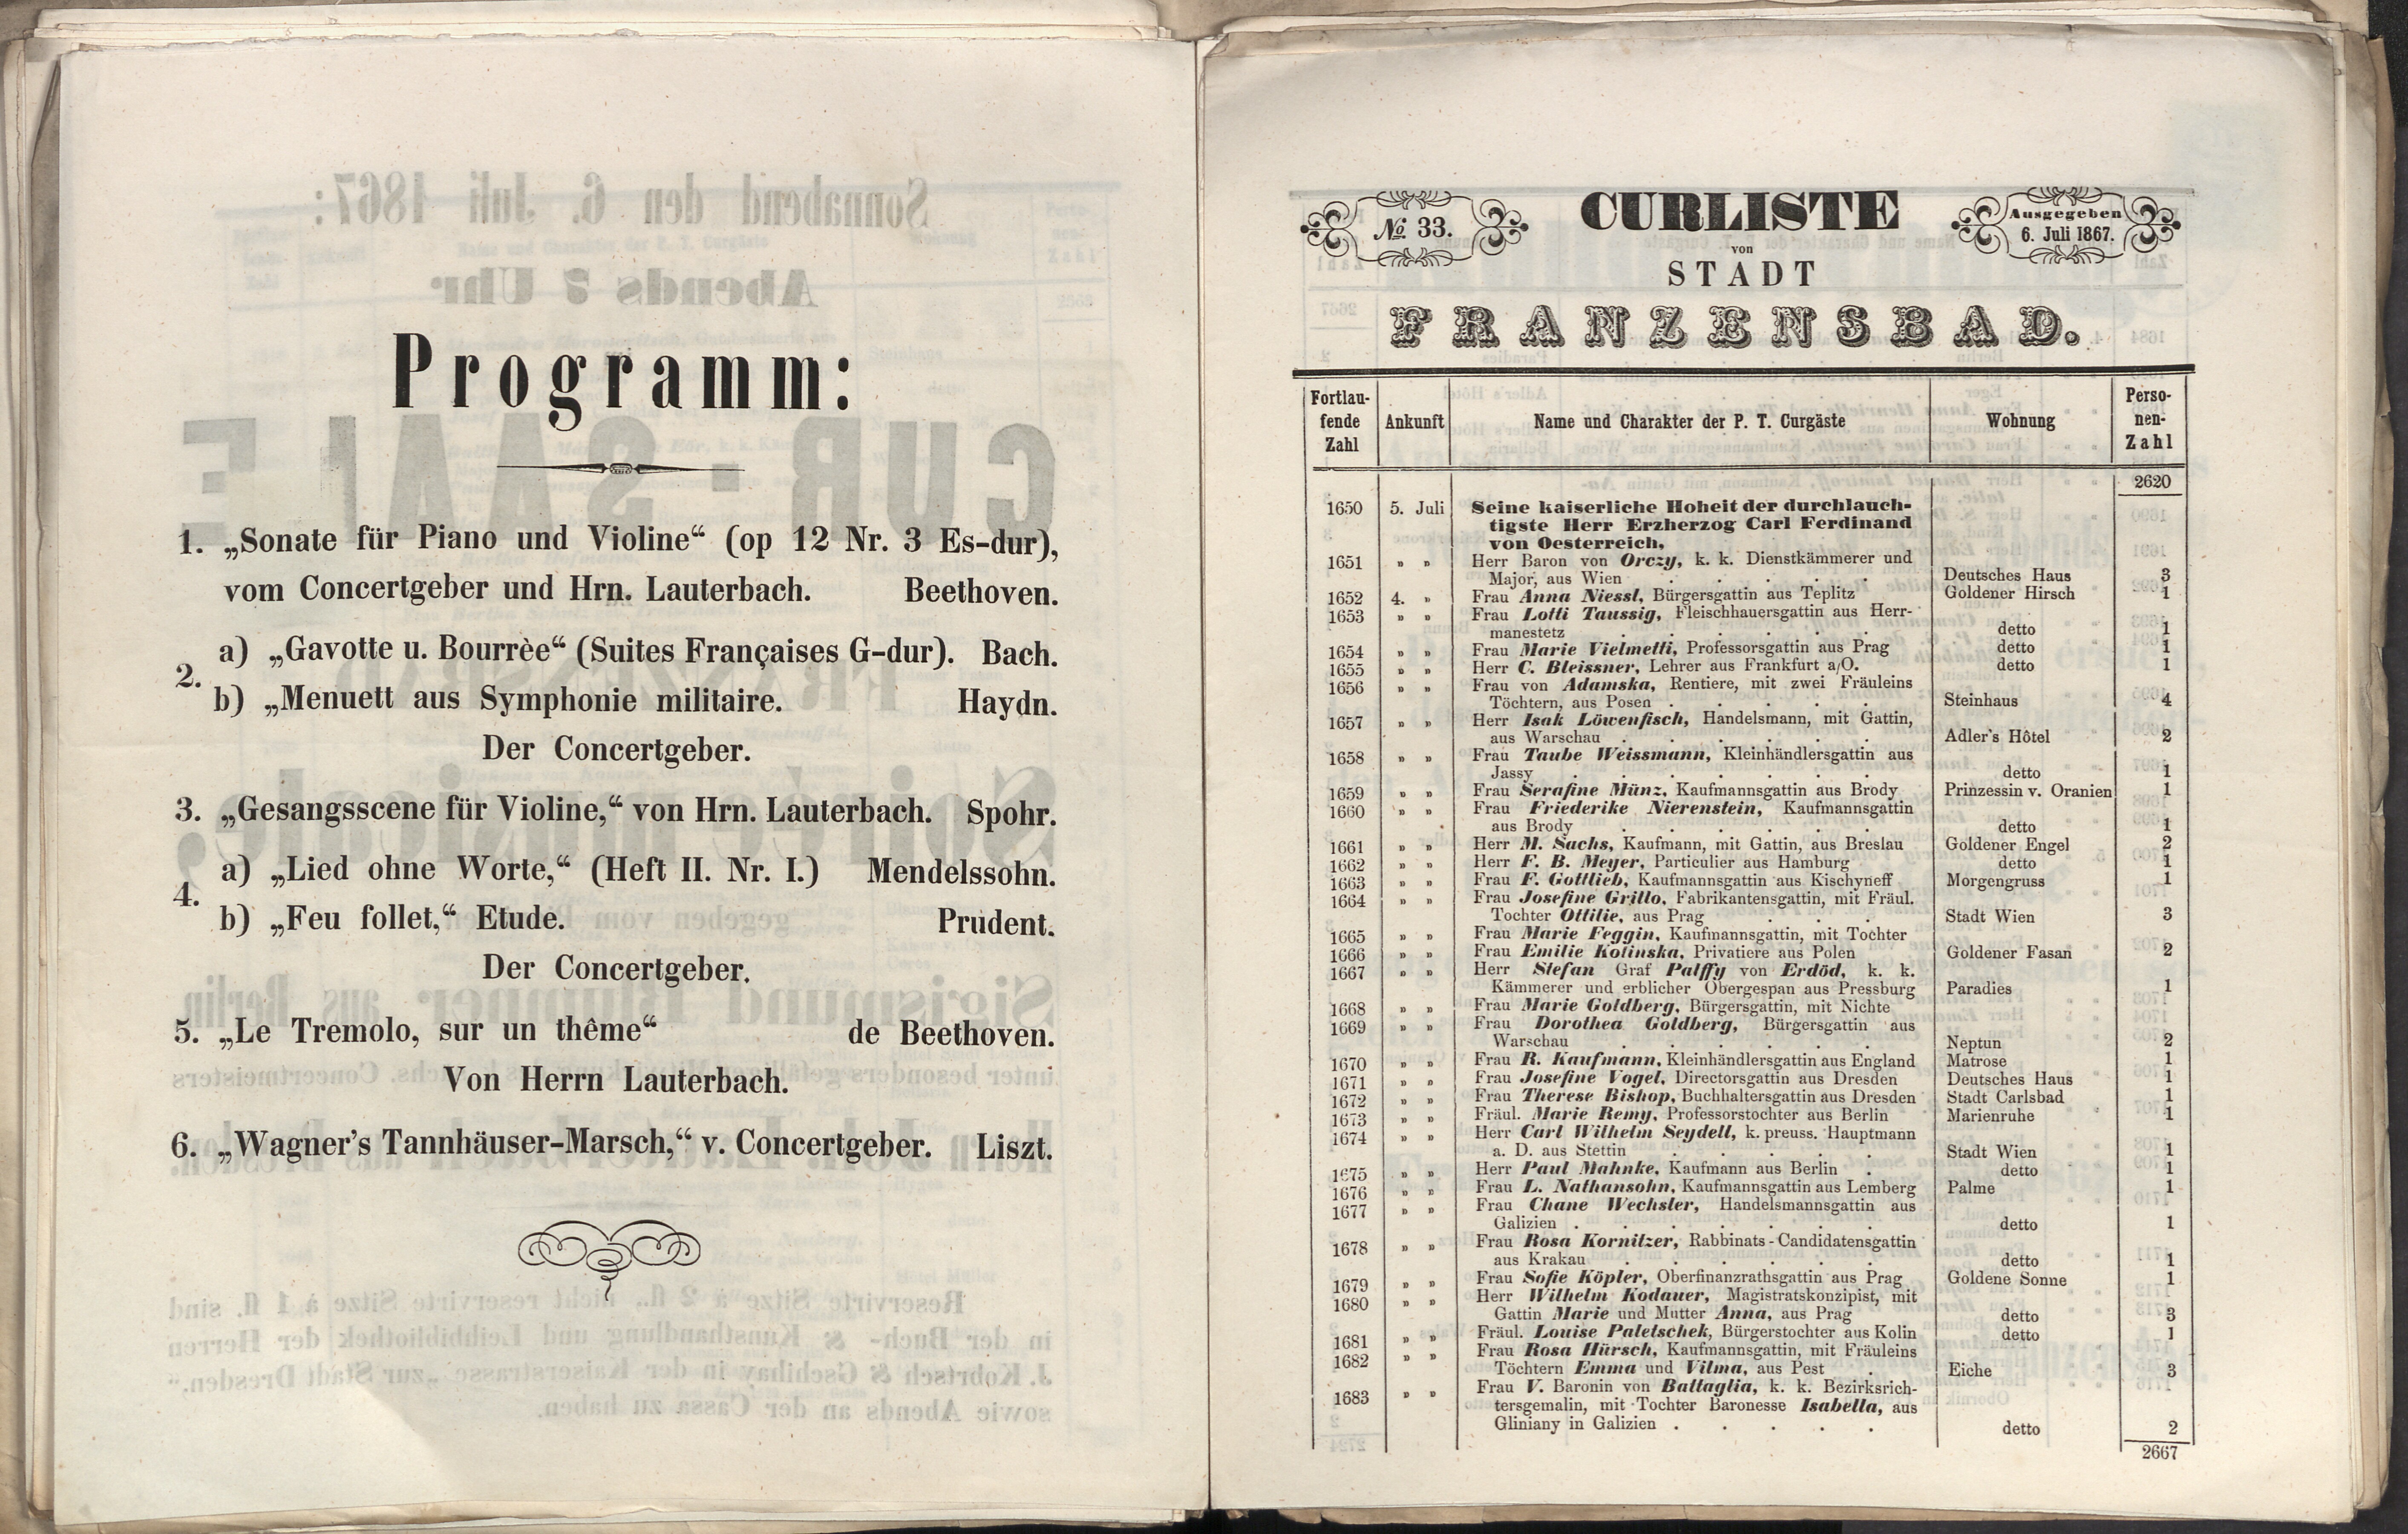 Programm:
1. „Sonate für Piano und Violine“ (op 12 Nr. 3 Es-dur),
vom Concertgeber und Hrn. Lauterbach. Beethoven.
2. a) „Gavotte u. Bourrèe“ (Suites Françaises G-dur). Bach.
b) „Menuett aus Symphonie militaire. Haydn.
Der Concertgeber.
3. „Gesangsscene für Violine,“ von Hrn. Lauterbach. Spohr.
4. a) „Lied ohne Worte,“ (Heft II. Nr. I.) Mendelssohn.
b) „Feu follet,“ Etude. Prudent.
Der Concertgeber.
5. „Le Tremolo, sur un thême“ de Beethoven.
Von Herrn Lauterbach.
6. „Wagner's Tannhäuser-Marsch,“ v. Concertgeber. Liszt.
No. 33.
CURLISTE
von
STADT
FRANZENSBAD.
Ausgegeben
6. Juli 1867.
Fortlau-
fende
Zahl
Ankunft
Name und Charakter der P. T. Curgäste
Wohnung
Perso-
nen-
Zahl
2620
1650 5. Juli Seine kaiserliche Hoheit der durchlauch-
tigste Herr Erzherzog Carl Ferdinand
von Oesterreich,
1651 „ „ Herr Baron von Orczy, k. k. Dienstkämmerer und
Major, aus Wien . . . . . Deutsches Haus 3
1652 4. „ Frau Anna Niessl, Bürgersgattin aus Teplitz Goldener Hirsch 1
1653 „ „ Frau Lotti Taussig, Fleischhauersgattin aus Herr-
manestetz . . . . . . detto 1
1654 „ „ Frau Marie Vielmetti, Professorsgattin aus Prag detto 1
1655 „ „ Herr C. Bleissner, Lehrer aus Frankfurt a/O. detto 1
1656 „ „ Frau von Adamska, Rentiere, mit zwei Fräuleins
Töchtern, aus Posen . . . . . Steinhaus 4
1657 „ „ Herr Isak Löwenfisch, Handelsmann, mit Gattin,
aus Warschau . . . . . . Adler's Hôtel 2
1658 „ „ Frau Taube Weissmann, Kleinhändlersgattin aus
Jassy . . . . . . . detto 1
1659 „ „ Frau Serafine Münz, Kaufmannsgattin aus Brody Prinzessin v. Oranien 1
1660 „ „ Frau Friederike Nierenstein, Kaufmannsgattin
aus Brody . . . . . . detto 1
1661 „ „ Herr M. Sachs, Kaufmann, mit Gattin, aus Breslau Goldener Engel 2
1662 „ „ Herr F. B. Meyer, Particulier aus Hamburg detto 1
1663 „ „ Frau F. Gottlieb, Kaufmannsgattin aus Kischyneff Morgengruss 1
1664 „ „ Frau Josefine Grillo, Fabrikantensgattin, mit Fräul.
Tochter Ottilie, aus Prag . . . Stadt Wien 3
1665 „ „ Frau Marie Feggin, Kaufmannsgattin, mit Tochter
1666 „ „ Frau Emilie Kolinska, Privatiere aus Polen Goldener Fasan 2
1667 „ „ Herr Stefan Graf Palffy von Erdöd, k. k.
Kämmerer und erblicher Obergespan aus Pressburg Paradies 1
1668 „ „ Frau Marie Goldberg, Bürgersgattin, mit Nichte
1669 „ „ Frau Dorothea Goldberg, Bürgersgattin aus
Warschau . . . . . . Neptun 2
1670 „ „ Frau R. Kaufmann, Kleinhändlersgattin aus England Matrose 1
1671 „ „ Frau Josefine Vogel, Directorsgattin aus Dresden Deutsches Haus 1
1672 „ „ Frau Therese Bishop, Buchhaltersgattin aus Dresden Stadt Carlsbad 1
1673 „ „ Fräul. Marie Remy, Professorstochter aus Berlin Marienruhe 1
1674 „ „ Herr Carl Wilhelm Seydell, k. preuss. Hauptmann
a. D. aus Stettin . . . . . Stadt Wien 1
1675 „ „ Herr Paul Mahnke, Kaufmann aus Berlin . detto 1
1676 „ „ Frau L. Nathansohn, Kaufmannsgattin aus Lemberg Palme 1
1677 „ „ Frau Chane Wechsler, Handelsmannsgattin aus
Galizien . . . . . . . detto 1
1678 „ „ Frau Rosa Kornitzer, Rabbinats-Candidatensgattin
aus Krakau . . . . . . detto 1
1679 „ „ Frau Sofie Köpler, Oberfinanzrathsgattin aus Prag Goldene Sonne 1
1680 „ „ Herr Wilhelm Kodauer, Magistratskonzipist, mit
Gattin Marie und Mutter Anna, aus Prag detto 3
1681 „ „ Fräul. Louise Paletschek, Bürgerstochter aus Kolin detto 1
1682 „ „ Frau Rosa Hürsch, Kaufmannsgattin, mit Fräuleins
Töchtern Emma und Vilma, aus Pest . Eiche 3
1683 „ „ Frau V. Baronin von Battaglia, k. k. Bezirksrich-
tersgemalin, mit Tochter Baronesse Isabella, aus
Gliniany in Galizien . . . . . detto 2
2667